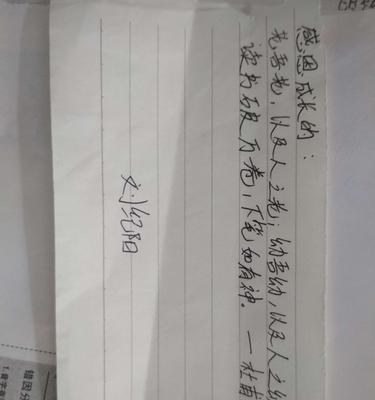 感恩成长的：
老吾老，以及人之老；幼吾幼，以及人之幼
读书破万卷，下笔如有神。—杜甫
刘纪阳
错因分